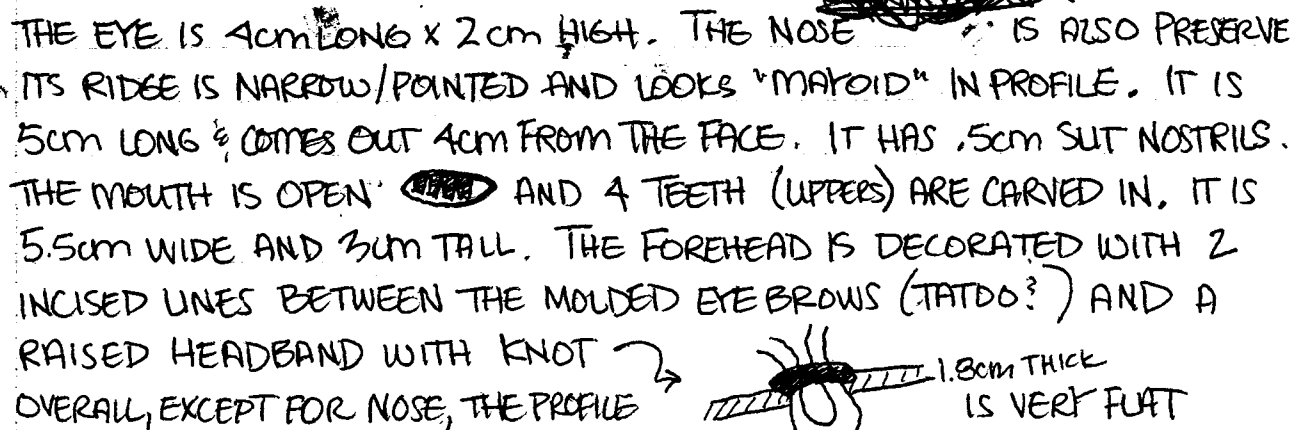 THE EYE IS 4cm LONG x 2cm HIGH. THE NOSE IS ALSO PRESERVE
ITS RIDGE IS NARROW/POINTED AND LOOKS "MAYOID" IN PROFILE. IT IS
5cm LONG & COMES OUT 4cm FROM THE FACE. IT HAS .5cm SLIT NOSTRILS.
THE MOUTH IS OPEN AND 4 TEETH (UPPERS) ARE CARVED IN. IT IS
5.5cm WIDE AND 3cm TALL. THE FOREHEAD IS DECORATED WITH 2
INCISED LINES BETWEEN THE MOLDED EYEBROWS (TATOO?) AND A
RAISED HEADBAND WITH KNOT
1.8cm THICK
OVERALL, EXCEPT FOR NOSE, THE PROFILE IS VERY FLAT